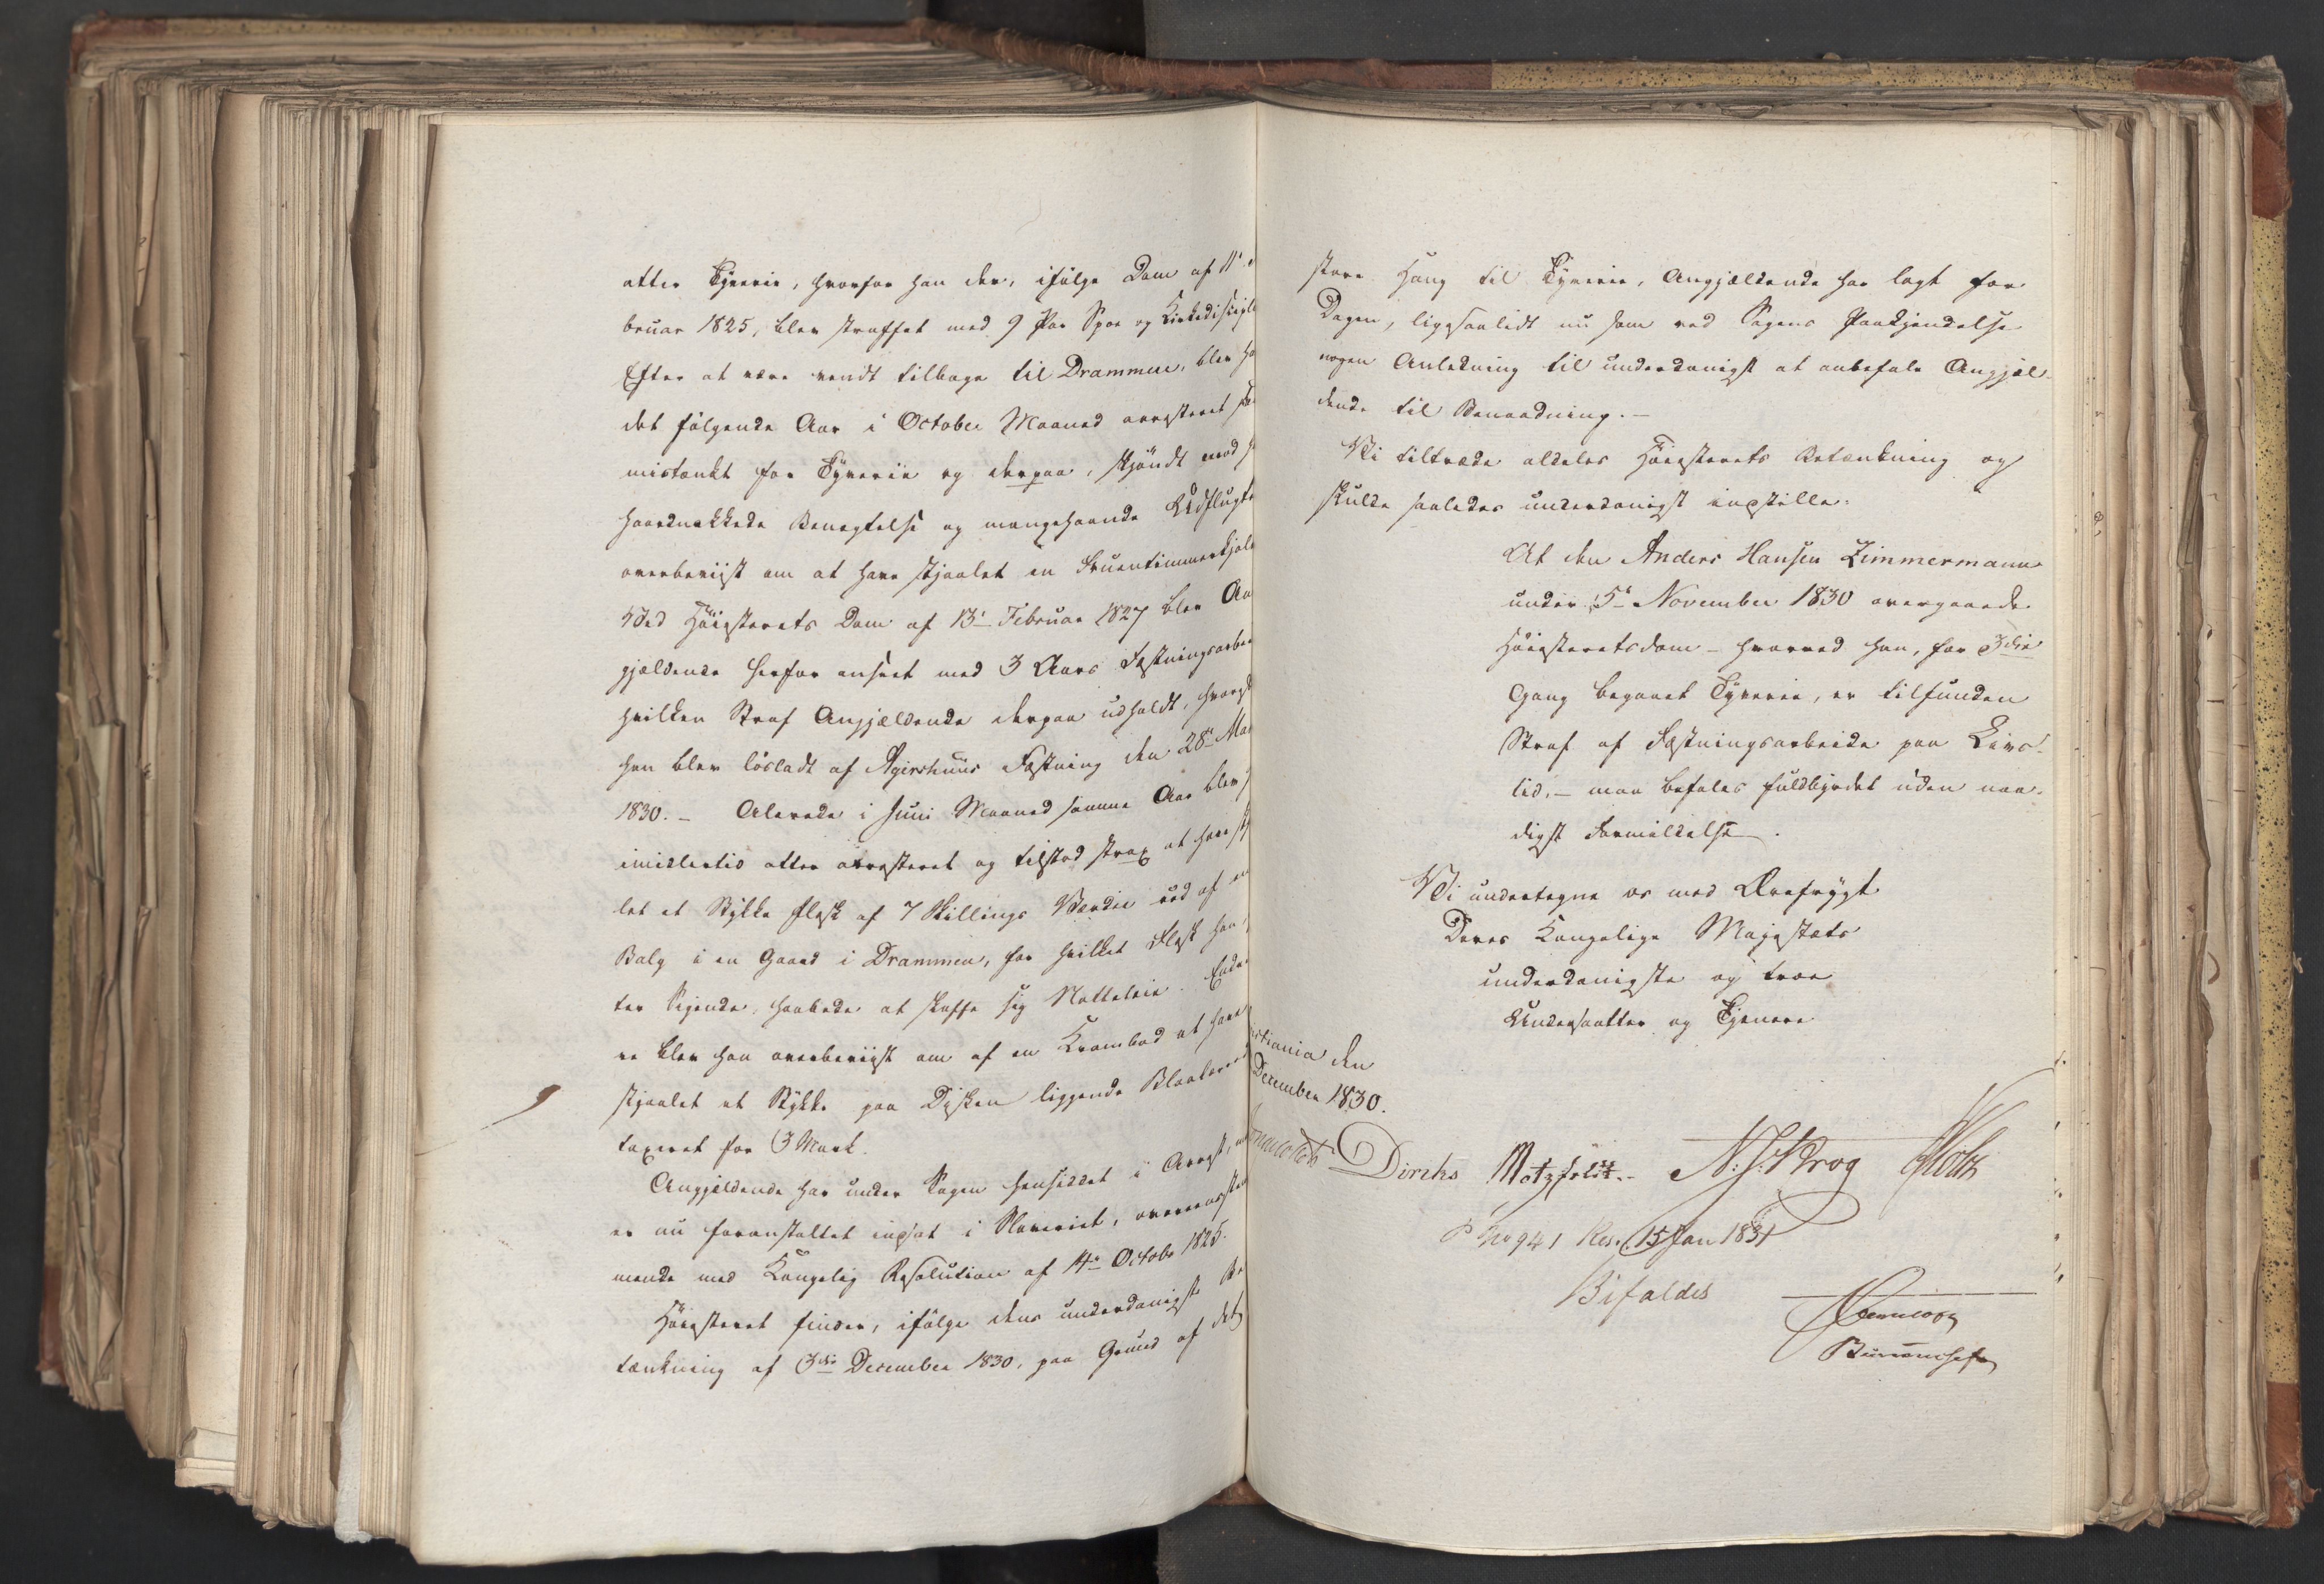 atter Tyverie, hvorfor han der, ifølge Dom af 11te
bruar 1825, blev straffet med 9 Par Spoe og Kirkediscipli
Efter at være vendt tilbage til Drammen, blev ha
det følgende Aar i October Maaned arresteret som
mistænkt for Tyverie og derpaa, skjøndt med
haardnakkede Benegtelse og mangehaande Udflugte
overbeviist om at have stjaalet en Fruentimmerkjole
Ved Høiesterets Dom af 13de Februar 1827 blev An
gjældende herfor anseet med 3 Aars Fæstningsarbei
hvilken Straf Angjældende derpaa udholdt, hvorpaa
han blev løsladt af Agershuus Fæstning den 28de Mai
1830. – Allerede i Juni Maaned samme Aar blev
imidlertid atter arresteret og tilstod strax at have stj
let et Stykke Flesk af 7 Skillings Værdie ud af en
Balg i en Gaard i Drammen, for hvilket Flesk han,
ter Sigende, haabede at skaffe sig Natteleie. Ende
re blev han overbeviist om af en Krambod at have
stjaalet et Stykke paa Disken liggende Blaalærred
taxeret for 3 Mark.
Angjældende har under Sagen hensiddet i Arrest,
er nu foranstaltet indsat i Slaveriet, overeensstem
mende med Kongelig Resolution af 14de Octobr 1825.
Høiesteret finder, ifølge dens underdanigste Be
tænkning af 3die December 1830, paa Grund af det
store Hang til Tyverie, Angjældende har lagt for
Dagen, ligesaalidt nu som ved Sagens Paakjendelse
nogen Anledning til underdanigst at anbefale Angjæl-
dende til Benaadning. –
Vi tiltræde aldeles Høiesterets Betænkning og
skulde saaledes underdanigst indstille:
At den Anders Hansen Zimmermann
under 5te November 1830 overgaaede
Høiesteretsdom – hvorved han, for 3die
Gang begaaet Tyverie, er tilfunden
Straf af Fæstningsarbeide paa Livs-
tid, – maa befales fuldbyrdet uden naa-
digst Formildelse.
Vi undertegne os med Ærefrygt
Deres Kongelige Majestæts
underdanigste og troe
Undersaatter og Tjenere
istiania den
December 1830.
Diriks Motzfeldt. N. J. Krog Holst
No 941 Res. 15 Jan 1831
Bifaldes